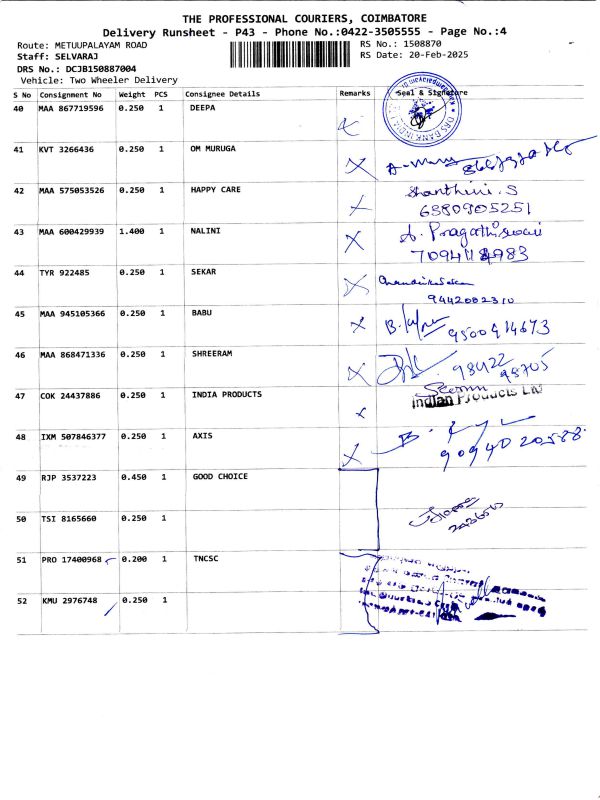 THE PROFESSIONAL COURIERS, COIMBATORE
Delivery Runsheet - P43 - Phone No.:0422-3505555 - Page No.:4
Route: METUUPALAYAM ROAD
RS No.: 1508870
Staff: SELVARAJ
RS Date: 20-Feb-2025
DRS No.: DCJB150887004
Vehicle: Two Wheeler Delivery
S No Consignment No Weight PCS Consignee Details Remarks Seal & Signature
40 MAA 867719596 0.250 1 DEEPA
DBS BANK INDIA
41 KVT 3266436 0.250 1 OM MURUGA
42 MAA 575053526 0.250 1 HAPPY CARE
Shanthini. S
6380905251
43 MAA 600429939 1.400 1 NALINI
A. Pragathiswari
44 TYR 922485 0.250 1 SEKAR
9442002310
45 MAA 945105366 0.250 1 BABU
9500914673
46 MAA 868471336 0.250 1 SHREERAM
98422
98705
47 COK 24437886 0.250 1 INDIA PRODUCTS
Indian Products Ltd
48 IXM 507846377 0.250 1 AXIS
9094020588
49 RJP 3537223 0.450 1 GOOD CHOICE
50 TSI 8165660 0.250 1
51 PRO 17400968 0.200 1 TNCSC
52 KMU 2976748 0.250 1